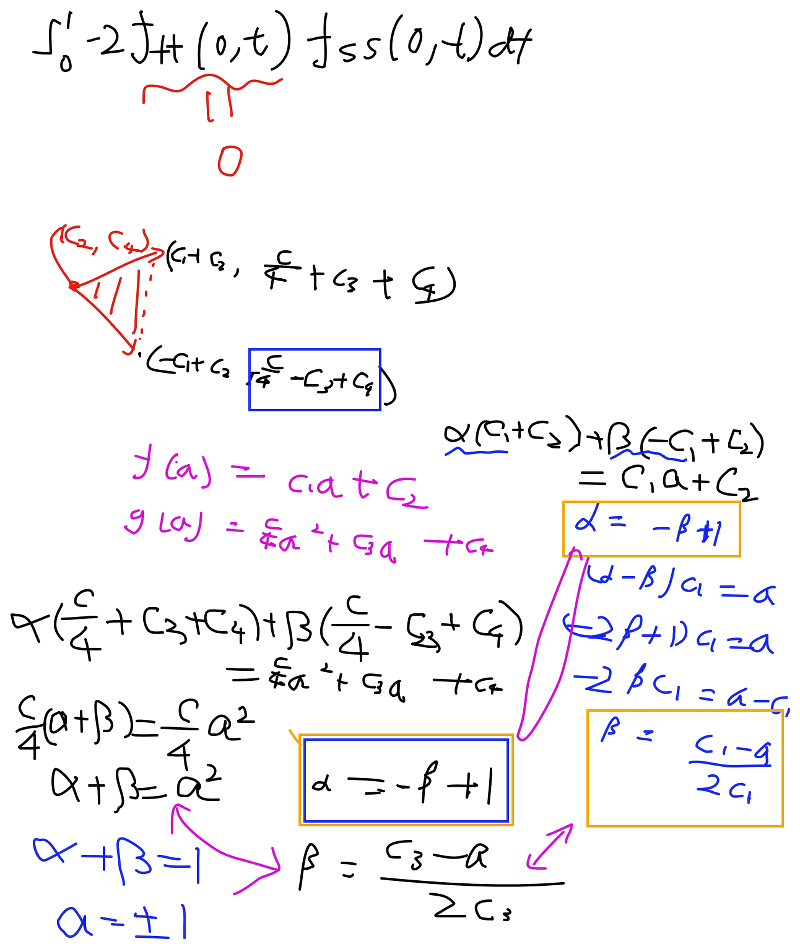 ∫₀¹ -2 f_tt(0,t) f_ss(0,t) dt
||
0
(C₂, C₄)
(C₁+C₂, C/4 + C₃ + C₄)
(-C₁+C₂, C/4 -C₃+C₄)
f(a) = C₁a + C₂
g(a) = C/4 a² + C₃a + C₄
α(C₁+C₂)+β(-C₁+C₂)
= C₁a+C₂
α = -β+1
(α-β)C₁ = a
(-2β+1)C₁ = a
-2βC₁ = a-C₁
β = (C₁-a)/(2C₁)
α(C/4 + C₃+C₄)+β(C/4 - C₃+C₄)
= C/4 a² + C₃a + C₄
C/4(α+β) = C/4 a²
α+β = a²
α = -β+1
α+β=1
β = (C₃-a)/(2C₃)
a = ±1